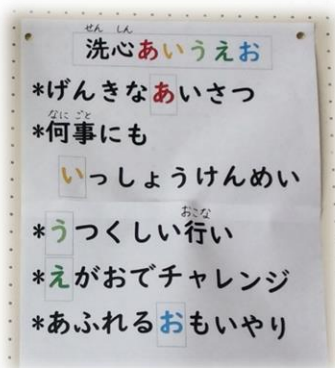 洗心あいうえお
*げんきなあいさつ
*何事にも
いっしょうけんめい
*うつくしい行い
*えがおでチャレンジ
*あふれるおもいやり